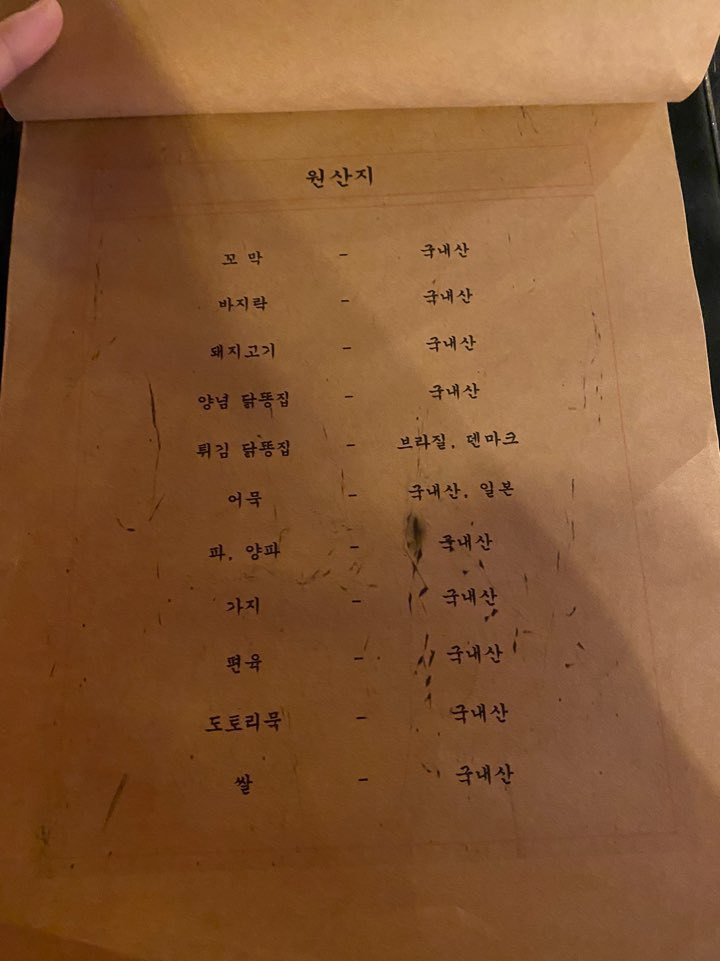 원산지
꼬막 - 국내산
바지락 - 국내산
돼지고기 - 국내산
양념 닭똥집 - 국내산
튀김 닭똥집 - 브라질, 덴마크
어묵 - 국내산, 일본
파, 양파 - 국내산
가지 - 국내산
편육 - 국내산
도토리묵 - 국내산
쌀 - 국내산